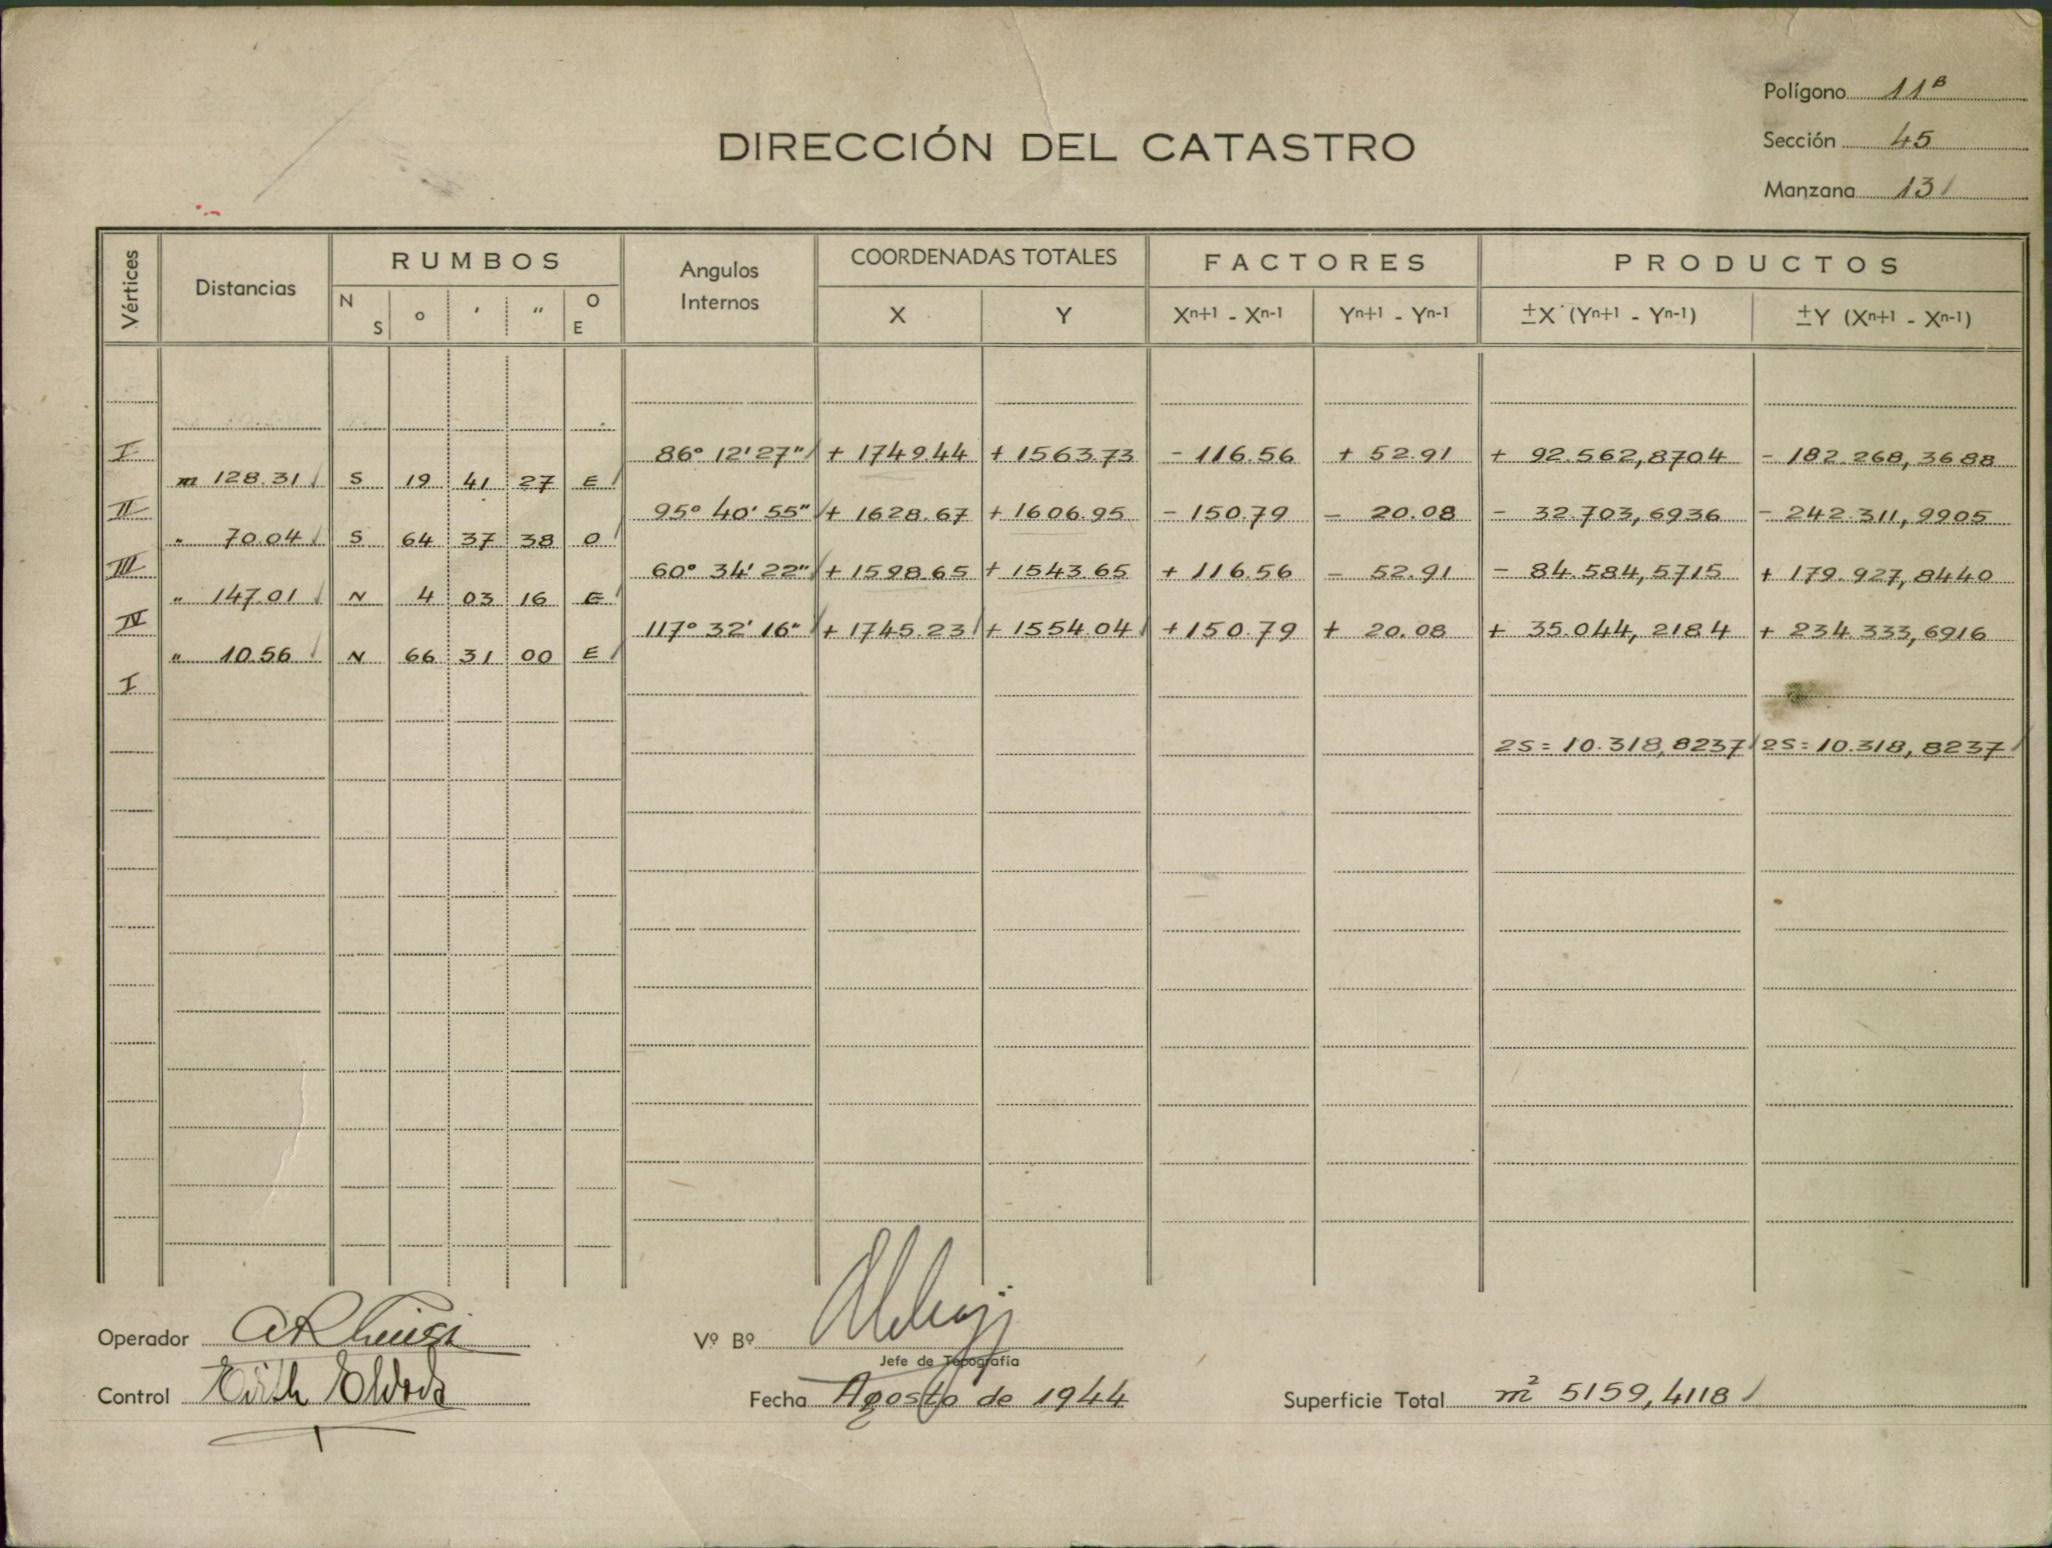 Polígono 11B
DIRECCIÓN DEL CATASTRO
Sección 45
Manzana 13
Vértices Distancias RUMBOS Angulos Internos COORDENADAS TOTALES FACTORES PRODUCTOS
N S o ' " O E X Y Xn+1 - Xn-1 Yn+1 - Yn-1 ±X (Yn+1 - Yn-1) ±Y (Xn+1 - Xn-1)
I 86° 12' 27" + 1749.44 + 1563.73 - 116.56 + 52.91 + 92.562,8704 - 182.268,3688
m 128.31 S 19 41 27 E
II 95° 40' 55" + 1628.67 + 1606.95 - 150.79 - 20.08 - 32.703,6936 - 242.311,9905
" 70.04 S 64 37 38 O
III 60° 34' 22" + 1598.65 + 1543.65 + 116.56 - 52.91 - 84.584,5715 + 179.927,8440
" 147.01 N 4 03 16 E
IV 117° 32' 16" + 1745.23 + 1554.04 + 150.79 + 20.08 + 35.044,2184 + 234.333,6916
" 10.56 N 66 31 00 E
I
2S = 10.318,8237 2S = 10.318,8237
Operador
Vº Bº
Jefe de Topografía
Control
Fecha Agosto de 1944
Superficie Total m² 5159,4118